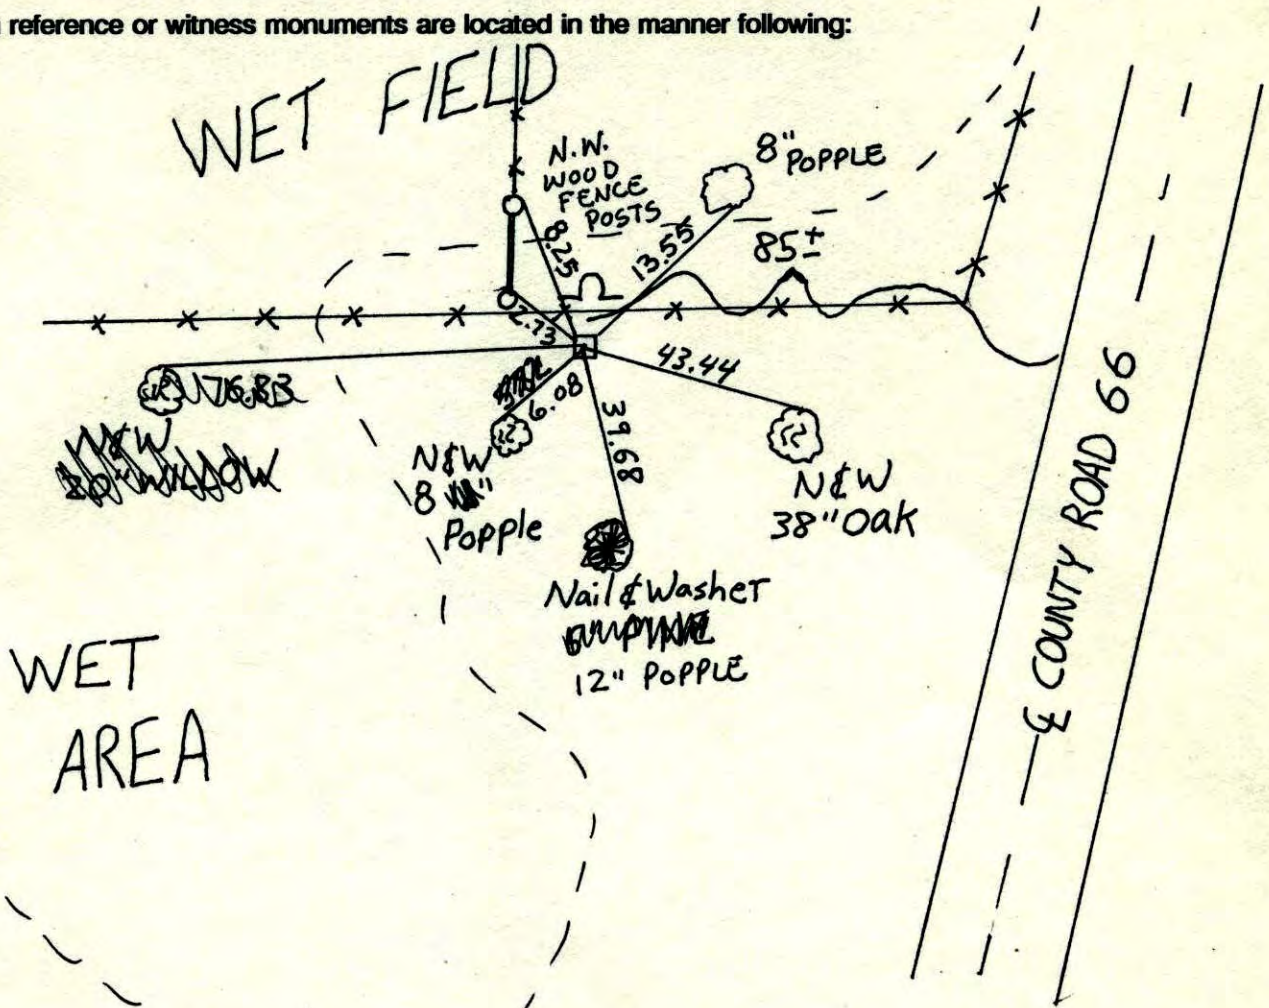 reference or witness monuments are located in the manner following:
WET FIELD
N.W.
WOOD
FENCE
POSTS
8"
POPPLE
8.25
13.55
85±
2.73
43.44
6.08
39.68
N&W
8"
Popple
N&W
38" Oak
Nail & Washer
12" POPPLE
WET
AREA
℄ COUNTY ROAD 66